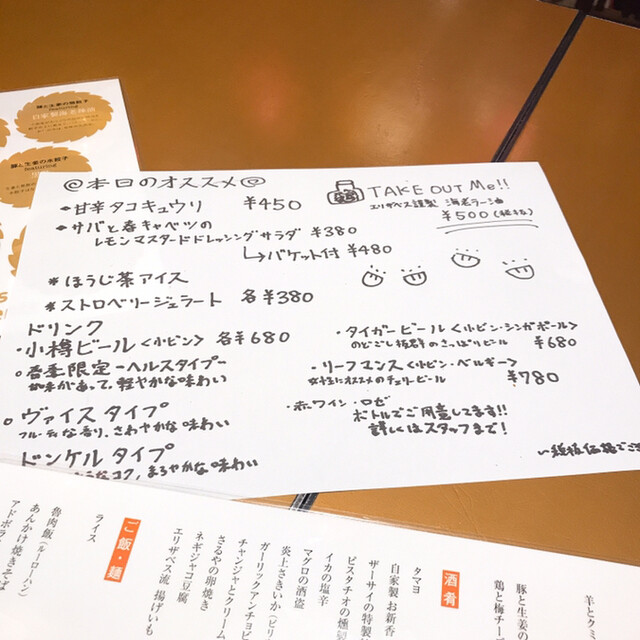 豚と生姜の焼餃子
featuring
自家製海老辣油
豚と生姜の水餃子
featuring
@本日のオススメ@
・甘辛タコキュウリ ¥450
・サバと春キャベツの
レモンマスタードドレッシングサラダ ¥380
↳バケット付 ¥480
*ほうじ茶アイス
*ストロベリージェラート 各¥380
ドリンク
・小樽ビール〈小ビン〉 各¥680
○春季限定-ヘルスタイプ-
甘味があって、軽やかな味わい
○ヴァイスタイプ
フルーティな香り、さわやかな味わい
ドンケルタイプ
ようなコク、まろやかな味わい
TAKE OUT Me!!
エリザベス謹製 海老ラー油
¥500(税抜)
・タイガービール〈小ビン・シンガポール〉
のどごし抜群のさっぱりビール ¥680
・リーフマンス〈小ビン・ベルギー〉
女性にオススメのチェリービール ¥780
・赤ワイン・ロゼ
ボトルでご用意してます!!
詳しくはスタッフまで!
〜税抜価格でご
羊とク
豚と生姜の
鶏と梅チー
酒肴
タマヨ
自家製 お新香
ザーサイの特製
ピスタチオの燻製
イカの塩辛
マグロの酒盗
炎上さきいか(ピリ
ガーリックアンチョビ
チャンジャとクリーム
さるやの卵焼き
ネギジャコ豆腐
エリザベス流 揚げいも
ご飯・麺
ライス
魯肉飯(ルーローハン)
あんかけ焼きそば
アドボラ